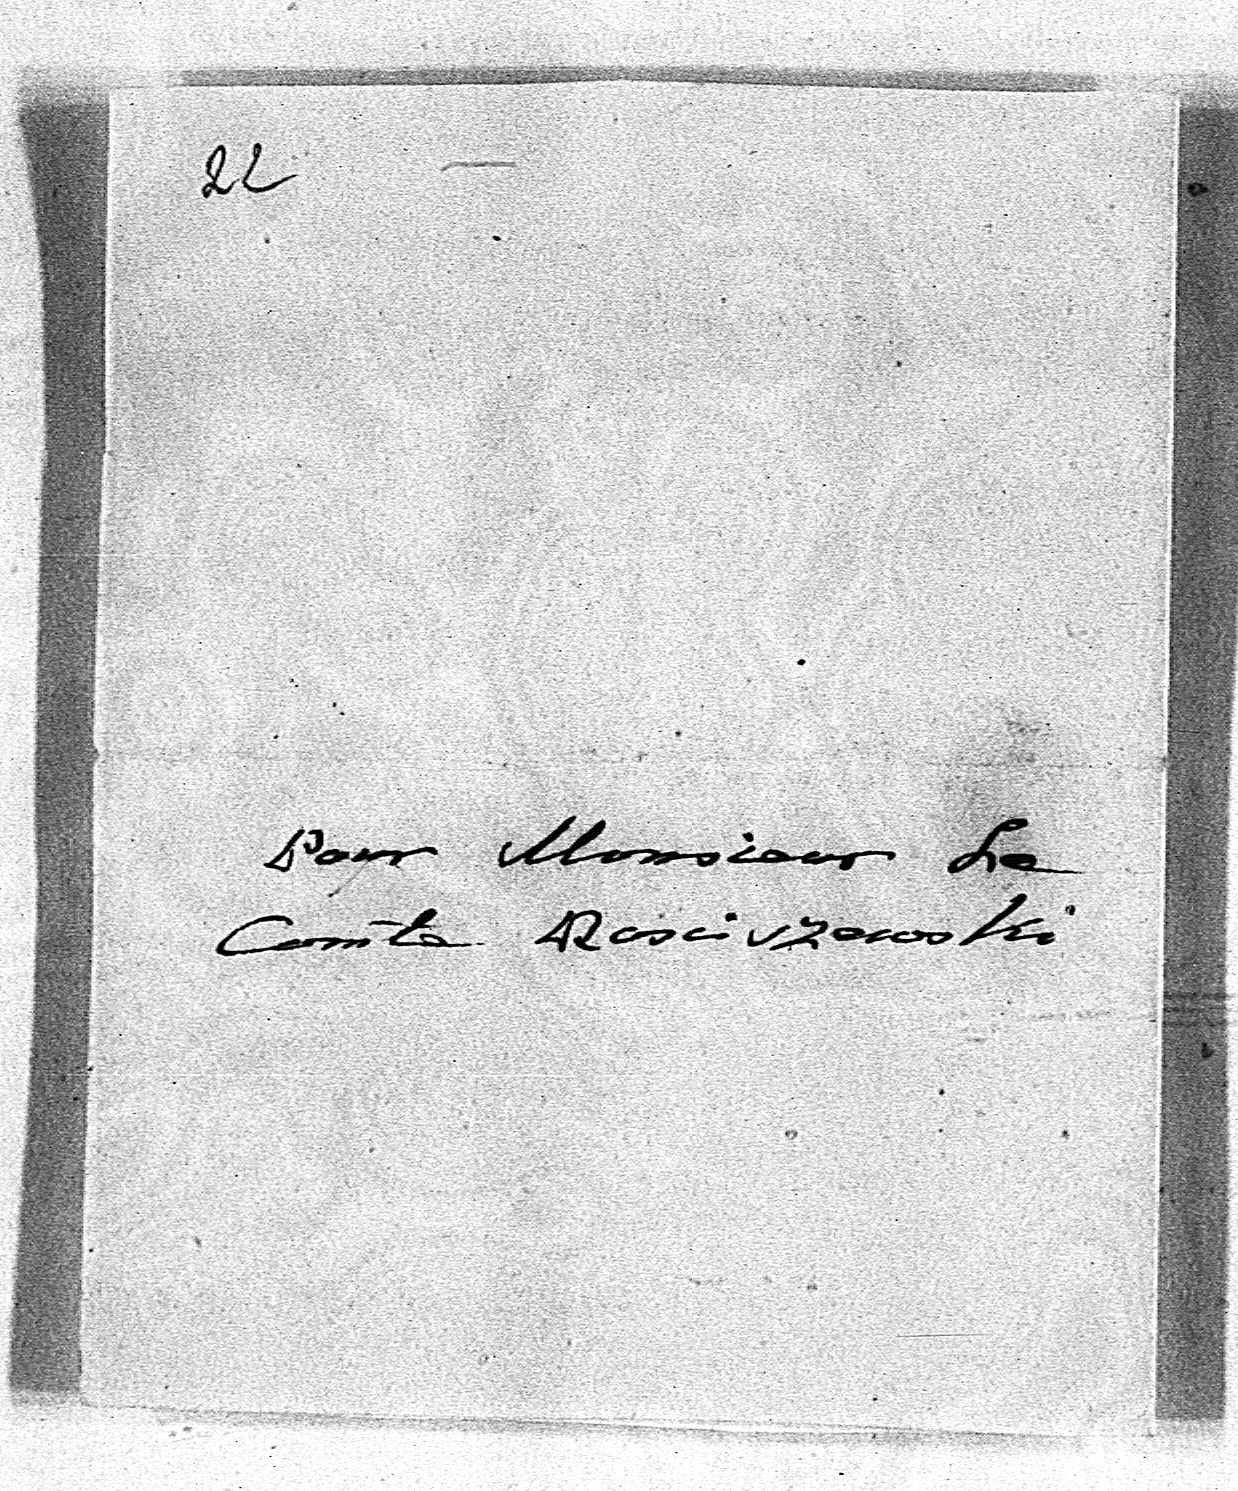 22
Pour Monsieur Le
Comte Rosciszewski